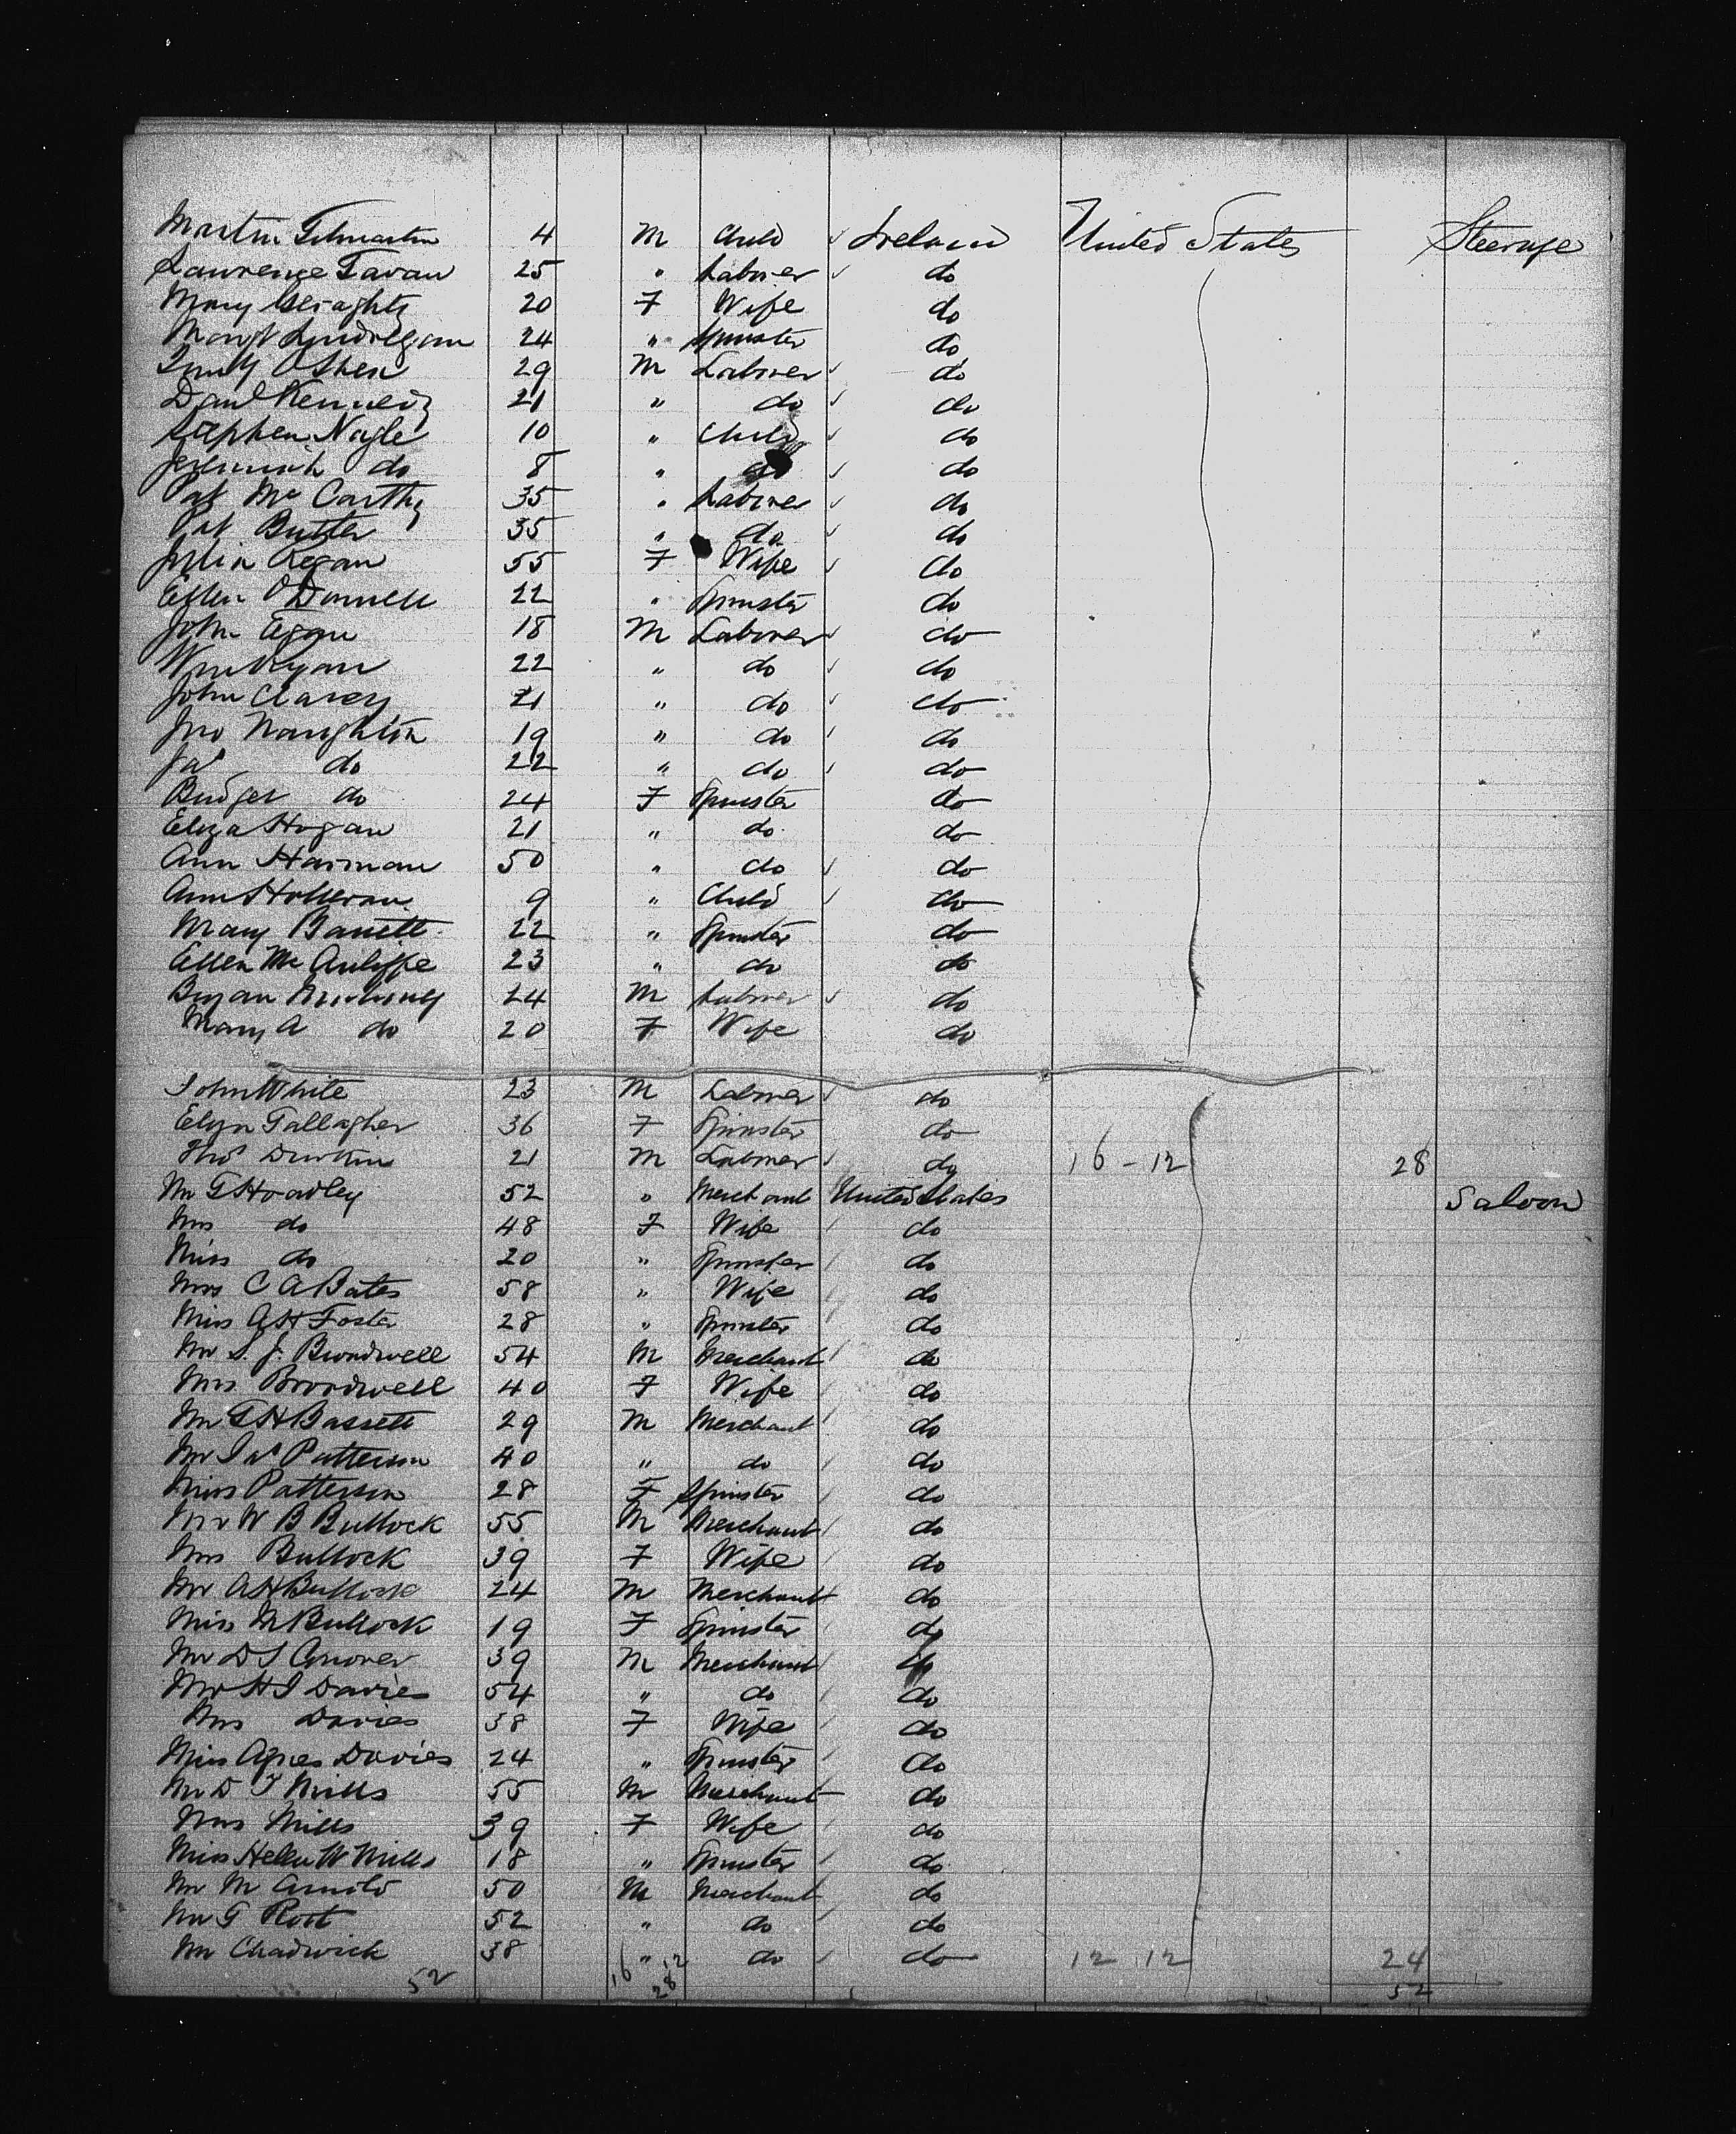 Martin Gilmartin 4 M Child Ireland United States Steerage
Lawrence Gavan 25 " Laborer do
Mary Geraghty 20 F Wife do
Margt 24 " Spinster do
O'Shea 29 M Laborer do
Danl Kennedy 21 " do do
Stephen Nagle 10 " Child do
Jeremiah do 8 " do do
Pat McCarthy 35 " Laborer do
Pat Butler 35 " do do
Julia Regan 55 F Wife do
Ellen O'Donnell 22 " Spinster do
John Egan 18 M Laborer do
Wm Ryan 22 " do do
John Clancy 21 " do do
Jno Naughton 19 " do do
Jas do 22 " do do
Bridget do 24 F Spinster do
Eliza Hogan 21 " do do
Ann Hannan 50 " do do
Ann Holleran 9 " Child do
Mary Barrett 22 " Spinster do
Ellen McAuliffe 23 " do do
Bryan 24 M Laborer do
Mary A do 20 F Wife do
John White 23 M Laborer do
Eliza Gallagher 36 F Spinster do
Thos Durkin 21 M Laborer do 16 - 12 28
Mr G Hoadley 52 " Merchant United States Saloon
Mrs do 48 F Wife do
Miss do 20 " Spinster do
Mrs C A Bates 58 " Wife do
Miss A H Foster 28 " Spinster do
Mr S. J. Broadwell 54 M Merchant do
Mrs Broadwell 40 F Wife do
Mr G H Bassett 29 M Merchant do
Mr Jas Patterson 40 " do do
Miss Patterson 28 F Spinster do
Mr W B Bullock 55 M Merchant do
Mrs Bullock 39 F Wife do
Mr A H Bullock 24 M Merchant do
Miss M Bullock 19 F Spinster do
Mr D S 39 M Merchant do
Mr H J Davies 54 " do do
Mrs Davies 38 F Wife do
Miss Agnes Davies 24 " Spinster do
Mr D T Mills 55 M Merchant do
Mrs Mills 39 F Wife do
Miss Helen W Mills 18 " Spinster do
Mr M Arnold 50 M Merchant do
Mr G Root 52 " do do
Mr Chadwick 38 " do do 12 12 24
52 16 12 28 52